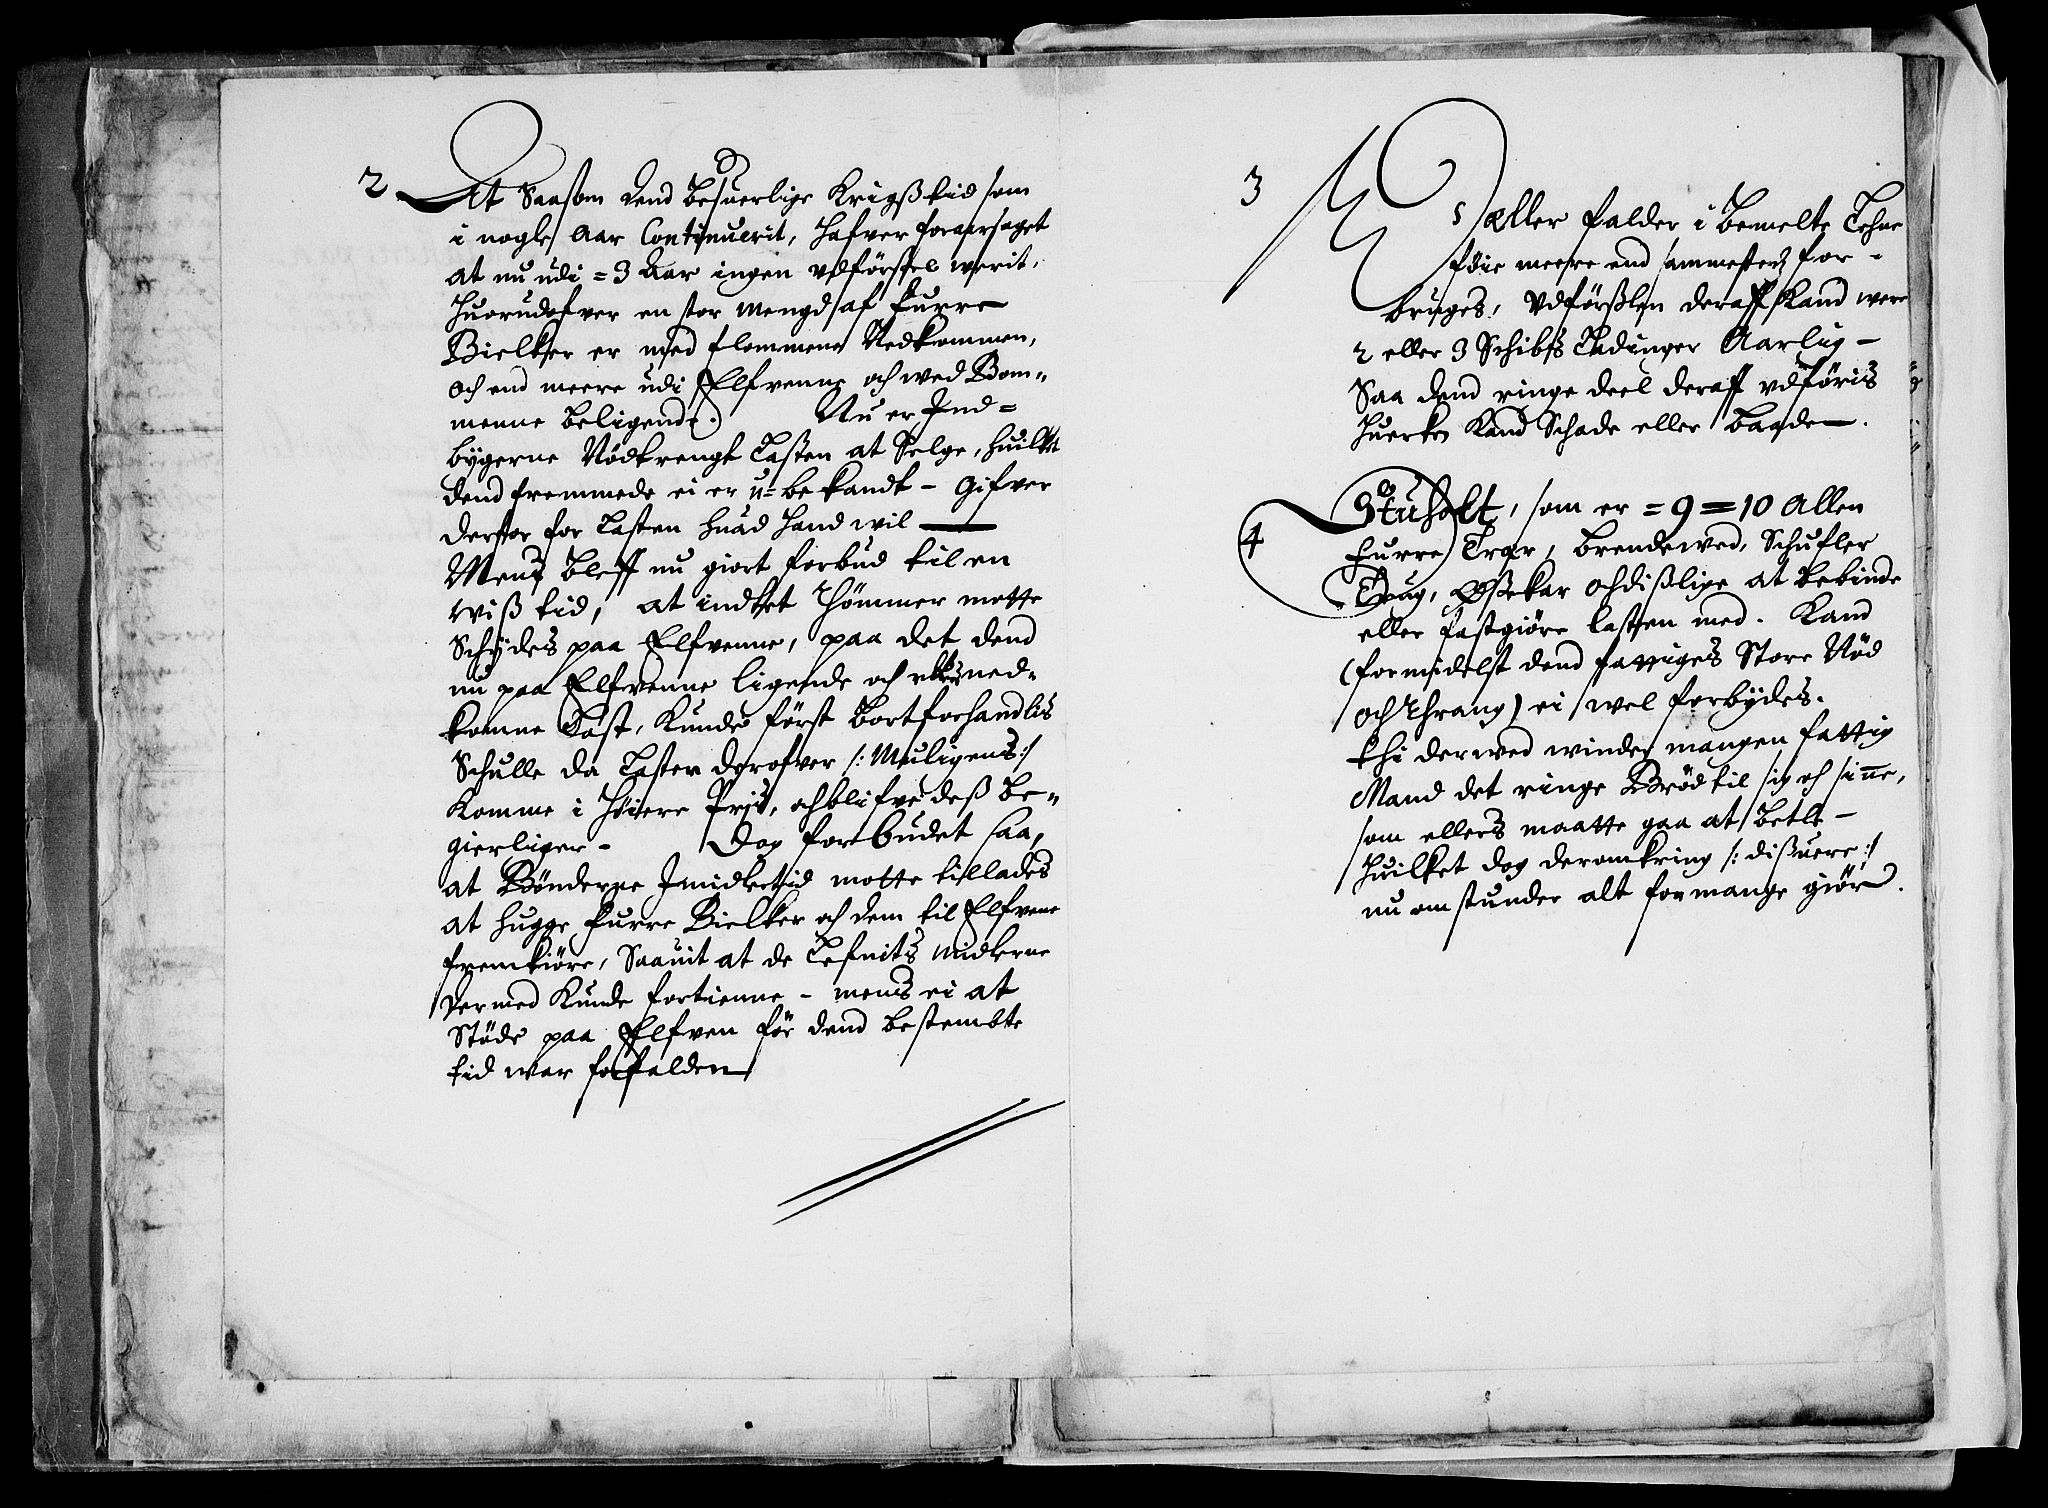 2 At Saasom dend besuerlige Krigsstid som
i nogle Aar Continuerit, hafver foraarsaget
at nu udi = 3 Aar ingen vdförssel werit,
Huorudofver en stor mengd af furre
Bielker er med flommene Nedkommen,
och end meere udi Elfvenne och wed Bom-
menne beligende. Nu er Ind=
bygerne Nödtrengt Lasten at Selge, huilket
dend fremmede ei er u=bekandt - Gifver
derfor for Lasten huad hand wil
Mens bleff nu giort forbud til en
wiss tid, at indtet Thömmer motte
Schydes paa Elfvenne, paa det dend
nu paa Elfvenne ligende och ned-
komne Last, Kunde först bortforhandlis
Schulle da Lasten derofver /: Muligens :/
Komme i höiere Pris, och blifve dess be-
gierliger - Dog forbudet saa,
at Bönderne Imidlertid motte tillades
at hugge furre Bielker och dem til Elfvene
fremkiöre, Saauit at de Lefnits midlerne
dermed Kunde fortienne - mens ei at
Stöde paa Elfven för dend bestembte
tid war forfalden
3 eller falder i bemelte Lehne
föie meere end sammesteds for-
bruges, Vdförsslen deraff Kand were
2 eller 3 Schibs Ladinger Aarlig -
Saa dend ringe deel deraff vdföris
huerken Kand Schade eller baade.
4 Stuholt, som er = 9 = 10 Allen
furre Træer, brendewed, Schufler
Trug, Össekar och disslige at bebinde
eller fastgiöre lasten med. Kand
(formidelst dend fattiges Store Nöd
och Thrang) ei wel forbydes.
thi derwed winder mangen fattig
Mand det ringe Bröd til sig och sinne,
som ellers maatte gaa at betle -
Huilket dog deromkring /: dissuere :/
nu omstunder alt for mange giör.